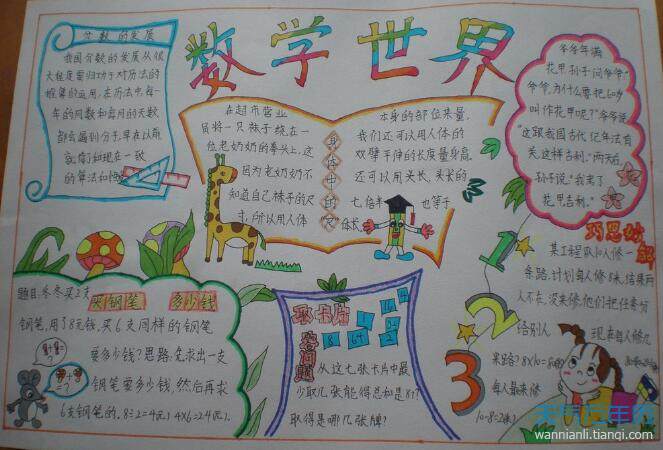 数学世界
分数的发展
我国分数的发展从很
大程度要归功于对历法的
推算的运用,在历法中,每一
年的周数和每月的天数
都会遇到分子,早在以前
就有了和现在一致
的算法如
在超市营业
员将一只袜子绕在一
位老奶奶的拳头上,这
因为老奶奶不
知道自己袜子的尺
寸,所以用人体
身体中的"尺"
本身的部位来量,
我们还可以用人体的
双臂平伸的长度量身高,
还可以用头长,头长的
七倍半 也等于
体长
爷爷年满
花甲,孙子问爷爷:"
爷爷,为什么要把60岁
叫作花甲呢?"爷爷说:
"这跟我国古代纪年法有
关,这样吉利."两天后,
孙子说:"我买了
花甲吉利."
题目:冬冬买2支
买钢笔 多少钱
钢笔,用了8元钱,买6支同样的钢笔
要多少钱?思路:先求出一支
钢笔要多少钱,然后再求
6支钢笔的.8÷2=4(元)4×6=24(元).
取卡片
答问题
从这七张卡片中最
少取几张能得总和是8?
取得是哪几张牌?
1
2
3
巧思妙解
某工程队10人修一
条路,计划每人修8米,结果两
人不在,没来修,他们把任务分
给别人 现在每人修几
米路?8×10=80(米)
每人最来修
10-8=2(米)
wannianli.tianqi.com